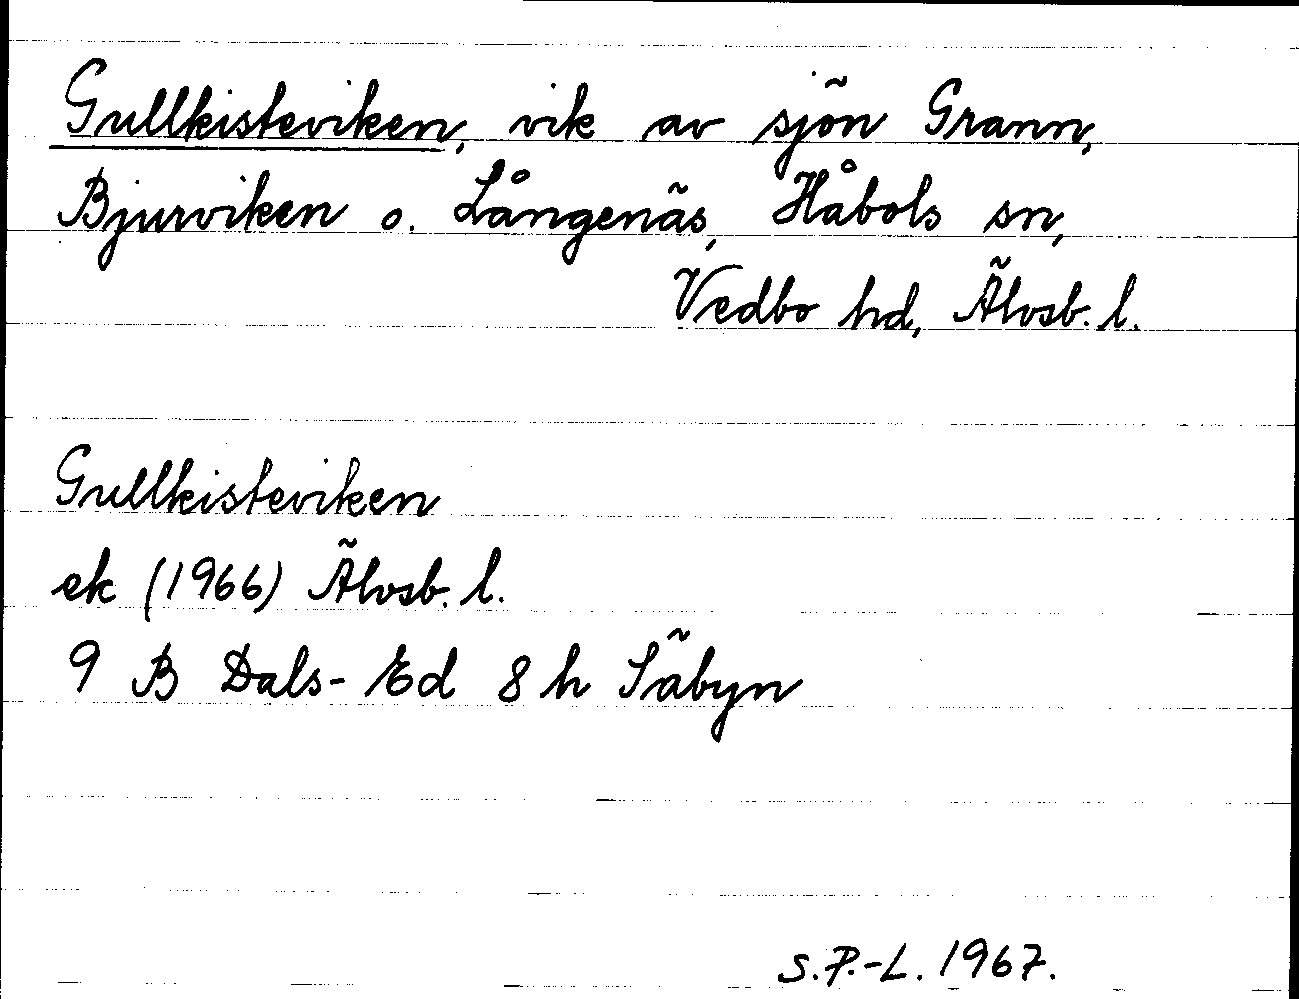 Gullkisteviken, vik av sjön Grann,
Bjurviken o. Långenäs, Håbols sn,
Vedbo hd, Älvsb. l.
Gullkisteviken
ek (1966) Älvsb. l.
9 B Dals-Ed 8 h Säbyn
S.P.-L. 1967.